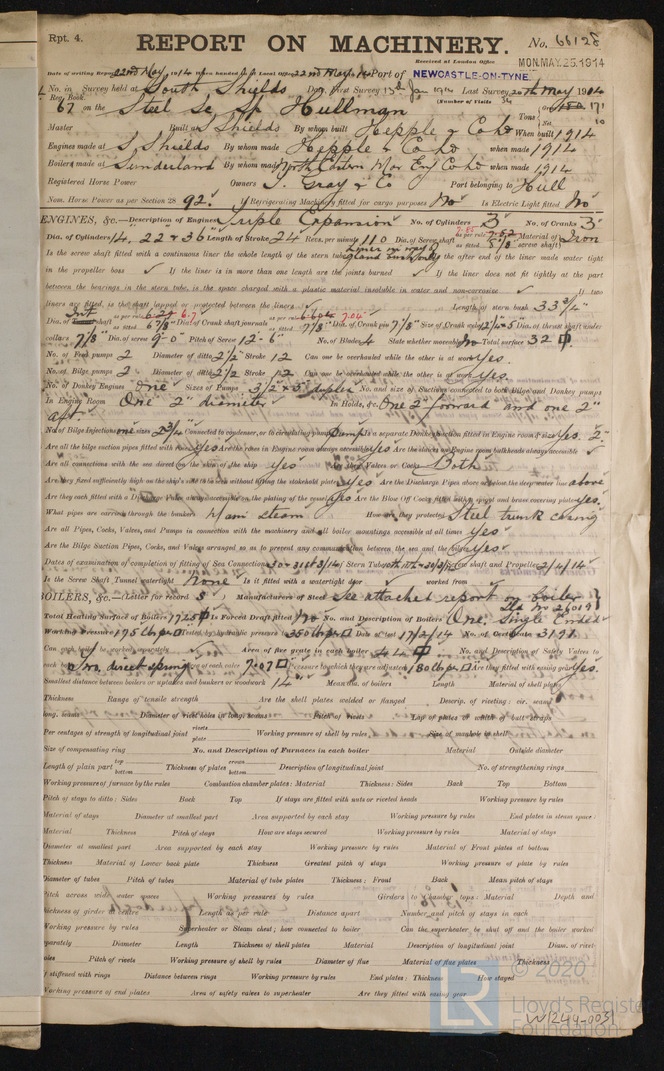 Rpt. 4.
REPORT ON MACHINERY. No. 66128
Received at London Office MON. MAY. 25. 1914
Date of writing Report 22nd May 1914 When handed in at Local Office 22nd May 1914 Port of NEWCASTLE-ON-TYNE
No. in Survey held at South Shields Date, First Survey 13th Jan 1914 Last Survey 20th May 1914
Reg. Book. (Number of Visits 34
67 on the Steel Sc Sp Hullman Tons Gross 171 Net
Master Built at S Shields By whom built Hepple & Co Ld When built 1914
Engines made at S Shields By whom made Hepple & Co Ld when made 1914
Boilers made at Sunderland By whom made North Eastern Mar Eng Co Ld when made 1914
Registered Horse Power Owners J. Gray & Co Port belonging to Hull
Nom. Horse Power as per Section 28 92. Is Refrigerating Machinery fitted for cargo purposes No Is Electric Light fitted No
ENGINES, &c.—Description of Engines Triple Expansion No. of Cylinders 3 No. of Cranks 3
Dia. of Cylinders 14, 22 & 36 Length of Stroke 24 Revs. per minute 110 Dia. of Screw shaft as per rule 7.52 as fitted Material of screw shaft Iron
Is the screw shaft fitted with a continuous liner the whole length of the stern tube Is the after end of the liner made water tight
in the propeller boss ✓ If the liner is in more than one length are the joints burned ✓ If the liner does not fit tightly at the part
between the bearings in the stern tube, is the space charged with a plastic material insoluble in water and non-corrosive ✓ If two
liners are fitted, is the shaft lapped or protected between the liners ✓ Length of stern bush 33 3/4"
Dia. of Int shaft as per rule 6.29 6.7 as fitted 6 7/8" Dia. of Crank shaft journals as per rule 6.604 7.04 as fitted 7 1/8" Dia. of Crank pin 7 1/8" Size of Crank webs Dia. of thrust shaft under
collars 7 1/8" Dia. of screw 9-0 Pitch of Screw 12-6" No. of Blades 4 State whether moveable No Total surface 32
No. of Feed pumps 2 Diameter of ditto 2 1/2 Stroke 12 Can one be overhauled while the other is at work Yes.
No. of Bilge pumps 2 Diameter of ditto 2 1/2 Stroke 12 Can one be overhauled while the other is at work Yes
No. of Donkey Engines One Sizes of Pumps 3 1/2 x 5" duplex No. and size of Suctions connected to both Bilge and Donkey pumps
In Engine Room One 2" diameter In Holds, &c. One 2" forward and one 2"
aft
No. of Bilge Injections one sizes 2 3/4 Connected to condenser, or to circulating pump pump Is a separate Donkey Suction fitted in Engine room & size Yes. 2"
Are all the bilge suction pipes fitted with roses Yes Are the roses in Engine room always accessible Yes Are the sluices on Engine room bulkheads always accessible ✓
Are all connections with the sea direct on the skin of the ship Yes Are they Valves or Cocks Both
Are they fixed sufficiently high on the ship's side to be seen without lifting the stokehold plates Yes Are the Discharge Pipes above or below the deep water line above
Are they each fitted with a Discharge Valve always accessible on the plating of the vessel Yes Are the Blow Off Cocks fitted with a spigot and brass covering plate Yes.
What pipes are carried through the bunkers Main steam How are they protected Steel trunk casing
Are all Pipes, Cocks, Valves, and Pumps in connection with the machinery and all boiler mountings accessible at all times Yes
Are the Bilge Suction Pipes, Cocks, and Valves arranged so as to prevent any communication between the sea and the bilges Yes
Dates of examination of completion of fitting of Sea Connections 30 & 31st 3/14 of Stern Tube Screw shaft and Propeller 2/4/14
Is the Screw Shaft Tunnel watertight None Is it fitted with a watertight door ✓ worked from ✓
BOILERS, &c.—(Letter for record S) Manufacturers of Steel See attached report on boiler
Sld No 26019
Total Heating Surface of Boilers 1725 Is Forced Draft fitted No No. and Description of Boilers One. Single Ended
Working Pressure 175 lb Tested by hydraulic pressure to 350 lb Date of test 17/2/14 No. of Certificate 3191
Can each boiler be worked separately ✓ Area of fire grate in each boiler 44 No. and Description of Safety Valves to
each boiler Two, direct spring Area of each valve 7.07 Pressure to which they are adjusted 180 lb Are they fitted with easing gear Yes.
Smallest distance between boilers or uptakes and bunkers or woodwork 14" Mean dia. of boilers Length Material of shell plates
Thickness Range of tensile strength Are the shell plates welded or flanged Descrip. of riveting: cir. seams
long. seams Diameter of rivet holes in long. seams Pitch of rivets Lap of plates or width of butt straps
Per centages of strength of longitudinal joint rivets plate Working pressure of shell by rules Size of manhole in shell
Size of compensating ring No. and Description of Furnaces in each boiler Material Outside diameter
Length of plain part top bottom Thickness of plates crown bottom Description of longitudinal joint No. of strengthening rings
Working pressure of furnace by the rules Combustion chamber plates: Material Thickness: Sides Back Top Bottom
Pitch of stays to ditto: Sides Back Top If stays are fitted with nuts or riveted heads Working pressure by rules
Material of stays Diameter at smallest part Area supported by each stay Working pressure by rules End plates in steam space:
Material Thickness Pitch of stays How are stays secured Working pressure by rules Material of stays
Diameter at smallest part Area supported by each stay Working pressure by rules Material of Front plates at bottom
Thickness Material of Lower back plate Thickness Greatest pitch of stays Working pressure of plate by rules
Diameter of tubes Pitch of tubes Material of tube plates Thickness: Front Back Mean pitch of stays
Pitch across wide water spaces Working pressures by rules Girders to Chamber tops: Material Depth and
thickness of girder at centre Length as per rule Distance apart Number and pitch of stays in each
Working pressure by rules Superheater or Steam chest; how connected to boiler Can the superheater be shut off and the boiler worked
separately Diameter Length Thickness of shell plates Material Description of longitudinal joint Diam. of rivet
holes Pitch of rivets Working pressure of shell by rules Diameter of flue Material of flue plates Thickness
If stiffened with rings Distance between rings Working pressure by rules End plates: Thickness How stayed
Working pressure of end plates Area of safety valves to superheater Are they fitted with easing gear
© 2020
Lloyd's Register
Foundation
W1249-0051